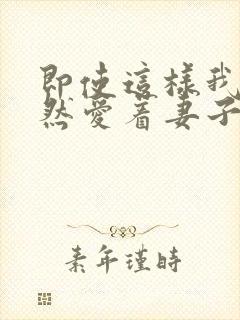 即使這樣我
然愛着妻子
素年瑾時